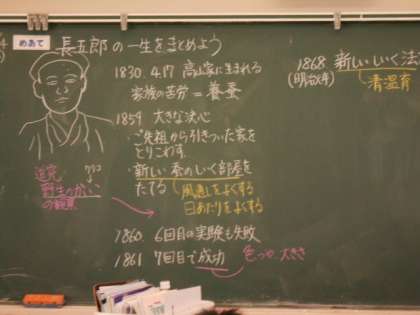 めあて 長五郎の一生をまとめよう
1830.4.17 高山家に生まれる
家族の苦労=養蚕
1859 大きな決心
ご先祖から引きついた家を
とりこわす。
新しい蚕のいく部屋を
たてる
風通しをよくする
日あたりをよくする
野生のかいこ
の観察
1860. 6回目の実験も失敗
1861 7回目で成功
色つや、大きさ
1868 新しいいく法
(明治元年)
清温育